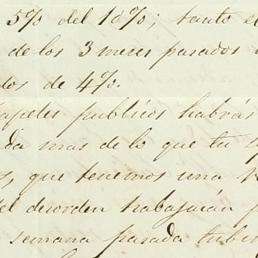 5% del 10%; tanto e
de los 3 meses pasados
dos de 4%.
apeles publicos habrás
da mas de lo que tu
s, que tenemos una
el desorden trabajarán
semana pasada tubi